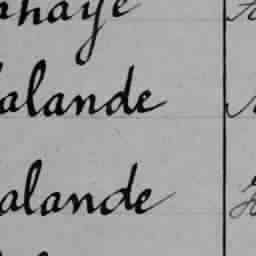 nhaye
alande
alande